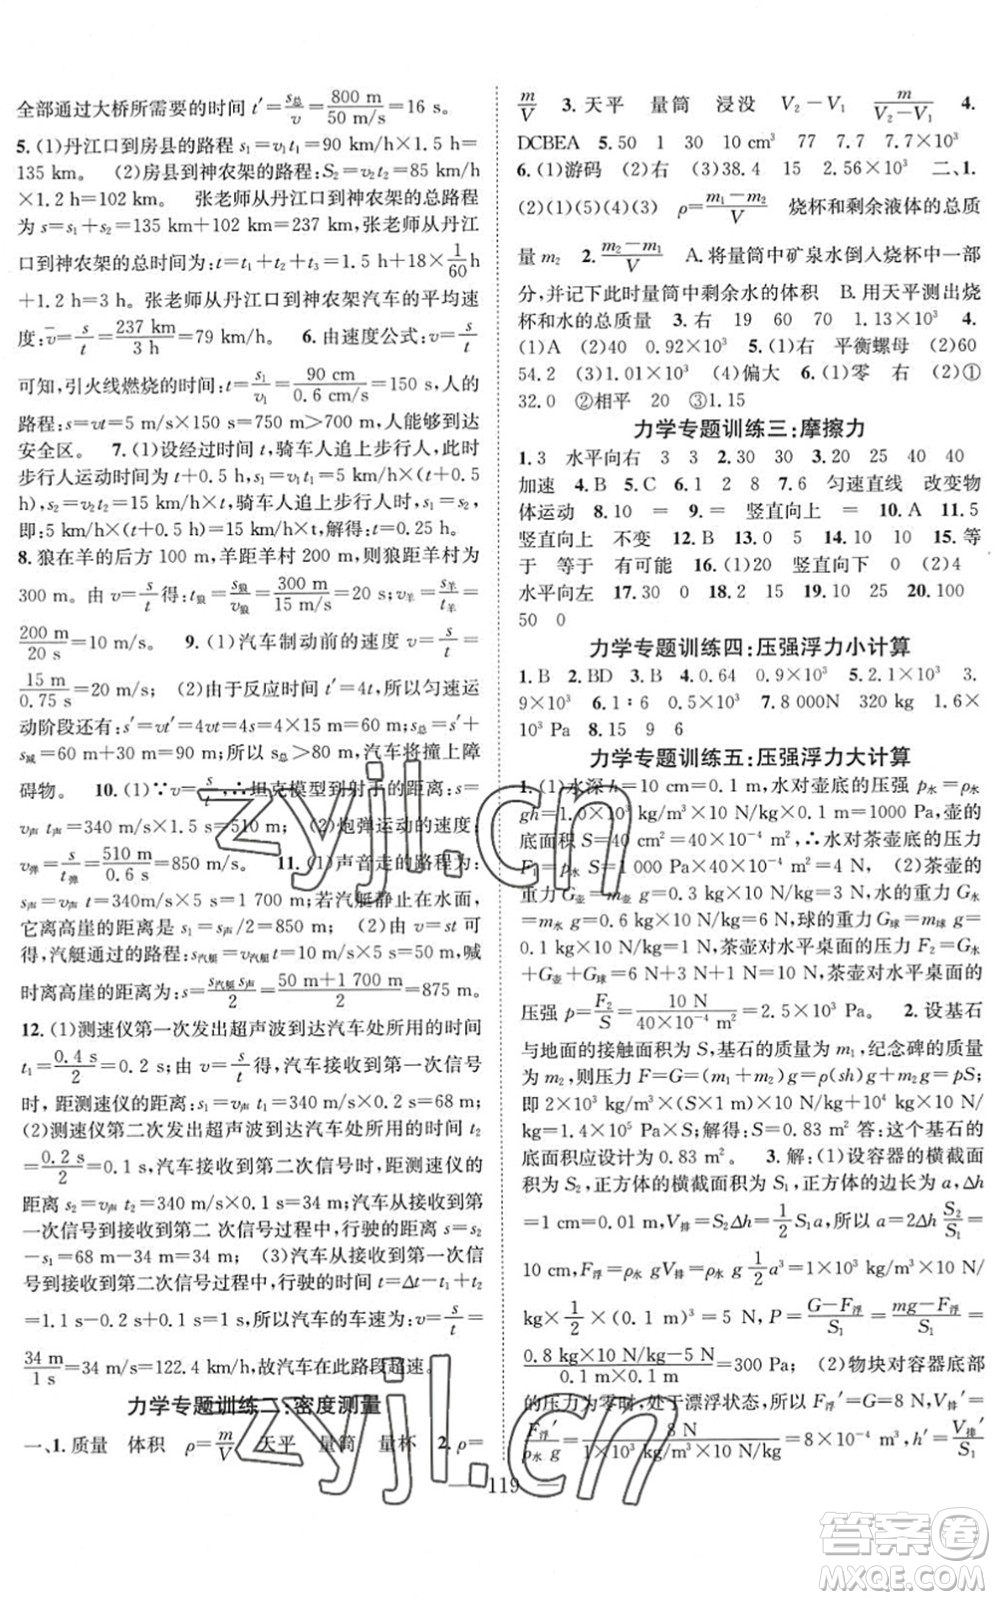 全部通过大桥所需要的时间 t′=s总/v=800 m/50 m/s=16 s。
5.(1)丹江口到房县的路程 s₁=v₁t₁=90 km/h×1.5 h=
135 km。 (2)房县到神农架的路程:S₂=v₂t₂=85 km/h
×1.2 h=102 km。 张老师从丹江口到神农架的总路程
为 s=s₁+s₂=135 km+102 km=237 km。张老师从丹江
口到神农架的总时间为:t=t₁+t₂+t₃=1.5 h+18×1/60 h
+1.2 h=3 h。张老师从丹江口到神农架汽车的平均速
度:v̄=s/t=237 km/3 h=79 km/h。 6.由速度公式:v=s/t
可知,引火线燃烧的时间:t=s₁/v₁=90 cm/0.6 cm/s=150 s,人的
路程:s=vt=5 m/s×150 s=750 m>700 m,人能够到达
安全区。 7.(1)设经过时间 t,骑车人追上步行人,此时
步行人运动时间为 t+0.5 h,s₁=v₁t₁=5 km/h×(t+0.5
h),s₂=v₂t₂=15 km/h×t,骑车人追上步行人时,s₁=s₂,
即:5 km/h×(t+0.5 h)=15 km/h×t,解得:t=0.25 h。
8.狼在羊的后方 100 m,羊距羊村 200 m,则狼距羊村
300 m。由 v=s/t得:t狼=s狼/v狼=300 m/15 m/s=20 s,v羊=s羊/t羊=
200 m/20 s=10 m/s。 9.(1)汽车制动前的速度 v=s/t=
15 m/0.75 s=20 m/s; (2)由于反应时间 t′=4t,所以匀速运
动阶段还有:s′=vt′=4vt=4s=4×15 m=60 m;s总=s′+
s减=60 m+30 m=90 m;所以 s总>80 m,汽车将撞上障
碍物。 10.(1)∵v=s/t,∴坦克模型到射击目标的距离:s=
v声t声=340 m/s×1.5 s=510 m; (2)炮弹运动的速度:
v弹=s/t弹=510 m/0.6 s=850 m/s。 11.(1)声音走的路程为:
s声=v声t=340m/s×5 s=1700 m,汽艇静止在水面,
它离高崖的距离是 s₁=s声/2=850 m。 (2)由 v=st 可
得,汽艇通过的路程:s汽艇=v汽艇t=10 m/s×5 s=50 m,喊
时离高崖的距离为:s=s汽艇 s声/2=50 m+1 700 m/2=875 m。
12.(1)测速仪第一次发出超声波到达汽车处所用的时间
t₁=0.4 s/2=0.2 s,由 v=s/t得,汽车接收到第一次信号
时,距测速仪的距离:s₁=v声 t₁=340 m/s×0.2 s=68 m;
(2)测速仪第二次发出超声波到达汽车处所用的时间 t₂
=0.2 s/2=0.1 s,汽车接收到第二次信号时,距测速仪的
距离 s₂=v声 t₂=340 m/s×0.1 s=34 m,汽车从接收到第
一次信号到接收到第二 次信号过程中,行驶的距离 s=s₂
-s₁=68 m-34 m=34 m; (3)汽车从接收到第一次信
号到接收到第二次信号过程中,行驶的时间 t=Δt-t₁+t₂
=1.1 s-0.2 s+0.1 s=1 s,所以汽车的车速为:v=s/t=
34 m/1 s=34 m/s=122.4 km/h,故汽车在此路段超速。
力学专题训练二:密度测量
一、1.质量 体积 ρ=m/V 天平 量筒 量杯 2.ρ=
m/V 3.天平 量筒 浸没 V₂-V₁ m/V₂-V₁ 4.
DCBEA 5.50 1 30 10 cm³ 77 7.7 7.7×10³
6.(1)游码 (2)右 (3)38.4 15 2.56×10³ 二、1.
(2)(1)(5)(4)(3) ρ=m₁-m₂/V 烧杯和剩余液体的总质
量 m₂ 2.m₂-m₁/V A.将量筒中矿泉水倒入烧杯中一部
分,并记下此时量筒中剩余水的体积 B.用天平测出烧
杯和水的总质量 3.右 19 60 70 1.13×10³ 4.
(1)A (2)40 0.92×10³ 5.(1)右 平衡螺母 (2)60
54.2 (3)1.01×10³ (4)偏大 6.(1)零 右 (2)①
32.0 ②相平 20 ③1.15
力学专题训练三:摩擦力
1.3 水平向右 3 3 2.30 30 3.20 25 40 40
加速 4.B 5.C 6.1 2 8 7.6 匀速直线 改变物
体运动 8.10 = = 9.= 竖直向上 = 10.A 11.5
竖直向上 不变 12.B 13.B 14.20 20 10 15.等
于 等于 有可能 16.(1)20 竖直向下 0 (2)4
水平向左 17.30 0 18.0 19.10 25 20.100
50 0
力学专题训练四:压强浮力小计算
1.B 2.BD 3.B 4.0.64 0.9×10³ 5.1.2×10³ 3.
9×10³ 6.1∶6 0.5×10³ 7.8 000N 320 kg 1.6×
10³ Pa 8.15 9 6
力学专题训练五:压强浮力大计算
1.(1)水深 h=10 cm=0.1 m,水对壶底的压强 p水=ρ水
gh=1.0×10³ kg/m³×10N/kg×0.1 m=1000 Pa,壶的
底面积 S=40 cm²=40×10⁻⁴ m²,∴水对茶壶底的压力
F₁=p水 S=1 000 Pa×40×10⁻⁴ m²=4 N; (2)茶壶的
重力 G壶=m壶g=0.3 kg×10 N/kg=3 N,水的重力 G水
=m水 g=0.6 kg×10 N/kg=6 N,球的重力 G球=m球 g=
0.1 kg×10 N/kg=1 N,茶壶对水平桌面的压力 F₂=G水
+G壶+G球=6 N+3 N+1 N=10 N,茶壶对水平桌面的
压强 p=F₂/S=10 N/40×10⁻⁴ m²=2.5×10³ Pa。 2.设基石
与地面的接触面积为 S,基石的质量为 m₁,纪念碑的质量
为 m₂,则压力 F=G=(m₁+m₂)g=ρ(sh)g+m₂g=pS;
即 2×10³ kg/m³×(S×1 m)×10 N/kg+10⁴ kg×10 N/kg
=1.4×10⁵ Pa×S;解得:S=0.83 m² 答:这个基石的
底面积应设计为 0.83 m²。 3.解:(1)设容器的横截面
积为 S₂,正方体的横截面积为 S₁,正方体的边长为 a,Δh
=1 cm=0.01 m,V排=S₂Δh=1/2S₁a,所以 a=2Δh S₂/S₁=
10 cm,F浮=ρ水 gV排=ρ水 g 1/2a³=1×10³ kg/m³×10 N/
kg×1/2×(0.1 m)³=5 N,P=G-F浮/S₁=mg-F浮/S₁=
0.8 kg×10 N/kg-5 N/0.1m×0.1m=300 Pa; (2)物块对容器底部
的压强恰好为零时,处于漂浮状态,所以 F浮′=G=8 N,V排
=F浮′/ρ水 g=8 N/1×10³ kg/m³×10 N/kg=8×10⁻⁴ m³,h′=V排/S₁
— 119 —
zyjl.cn
zyjl.cn
答案圈
MXQE.COM